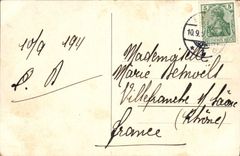 10/9 1911
L. B
Mademoiselle
Marie
Villefranche s/ Saône
(Rhône)
France
10.9.
5 5